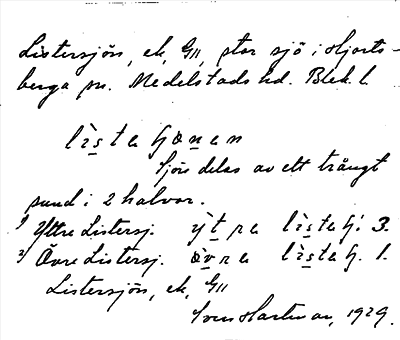 Listersjön, ek, G11, stor sjö i Hjorts-
berga sn. Medelstads hd. Blek. l.
lìsta ɧønan
Sjön delas av ett trångt
sund i 2 halvor.
1) Yttre Listersj. ỳtra lìstaɧ. 3.
2) Övre Listersj. øvra lìstaɧ. 1.
Listersjön, ek, G11
Sven 1929.